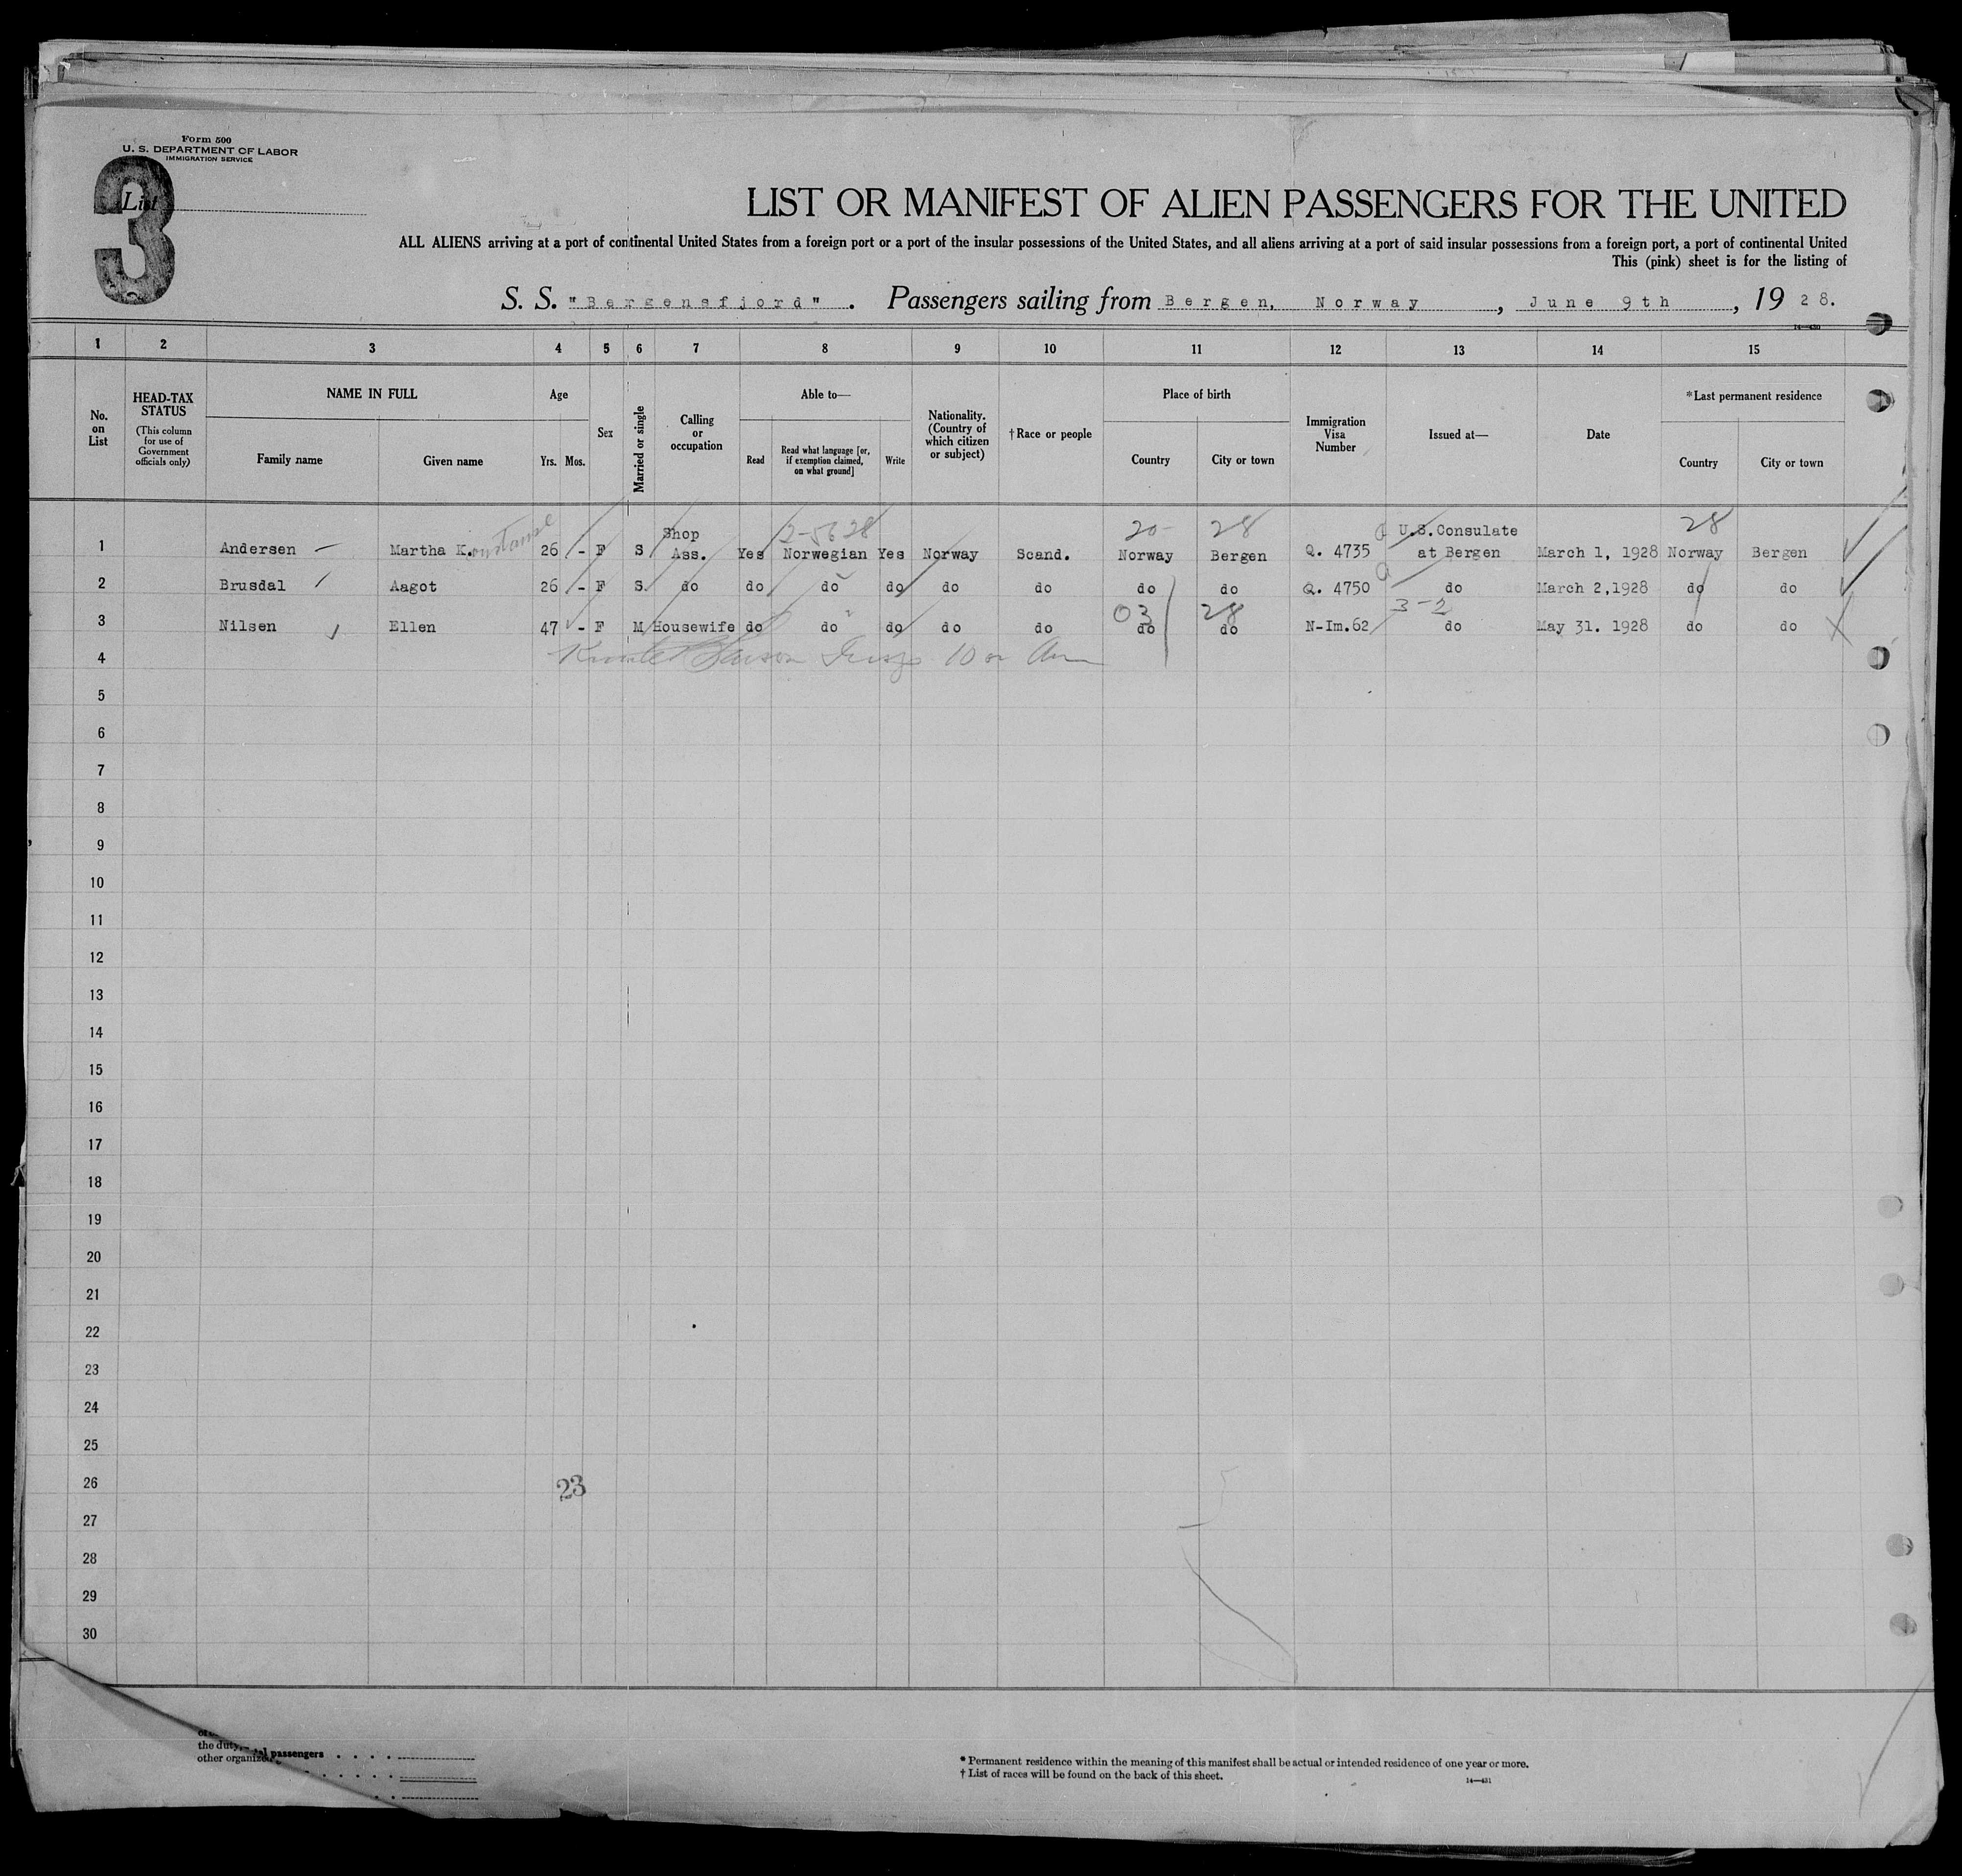 Form 500
U. S. DEPARTMENT OF LABOR
IMMIGRATION SERVICE
3
List
LIST OR MANIFEST OF ALIEN PASSENGERS FOR THE UNITED
ALL ALIENS arriving at a port of continental United States from a foreign port or a port of the insular possessions of the United States, and all aliens arriving at a port of said insular possessions from a foreign port, a port of continental United
This (pink) sheet is for the listing of
S. S. "Bergensfjord". Passengers sailing from Bergen, Norway, June 9th, 19 28.
14—430
1 2 3 4 5 6 7 8 9 10 11 12 13 14 15
No. on List
HEAD-TAX STATUS (This column for use of Government officials only)
NAME IN FULL
Family name Given name
Age
Yrs. Mos.
Sex
Married or single
Calling or occupation
Able to—
Read Read what language [or, if exemption claimed, on what ground] Write
Nationality. (Country of which citizen or subject)
†Race or people
Place of birth
Country City or town
Immigration Visa Number
Issued at—
Date
*Last permanent residence
Country City or town
2-5628 20- 28 28
1 Andersen — Martha K. 26 - F S Shop Ass. Yes Norwegian Yes Norway Scand. Norway Bergen Q. 4735 U.S. Consulate at Bergen March 1, 1928 Norway Bergen
2 Brusdal Aagot 26 - F S do do do do do do do do Q. 4750 do March 2, 1928 do do
03 28 3-2
3 Nilsen Ellen 47 - F M Housewife do do do do do do do N-Im.62 do May 31. 1928 do do
4
5
6
7
8
9
10
11
12
13
14
15
16
17
18
19
20
21
22
23
24
25
26 23
27
28
29
30
the duty
other organiz
passengers
* Permanent residence within the meaning of this manifest shall be actual or intended residence of one year or more.
† List of races will be found on the back of this sheet.
14—431